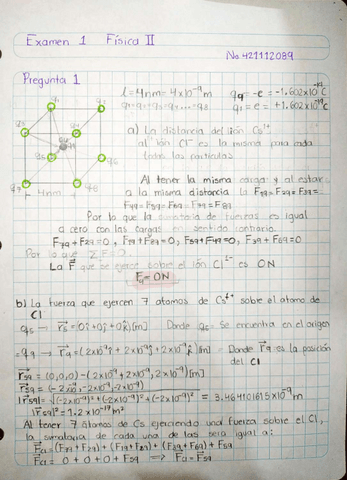 Examen 1 Física II
No 421112089
Pregunta 1
l = 4nm = 4x10⁻⁹ m
q₉ = -e = -1.602x10⁻¹⁹ C
q₁ = e = +1.602x10⁻¹⁹ C
4nm
a) La distancia del ión Cs¹⁺
al ión Cl⁻ es la misma para cada
todas las partículas
Al tener la misma carga y al estar
a la misma distancia la F₁₉ = F₂₉ = F₃₉ =
F₄₉ = F₅₉ = F₆₉ = F₇₉ = F₈₉
Por lo que la sumatoria de fuerzas es igual
a cero con las cargas en sentido contrario.
Por lo que ΣF = 0
La F que se ejerce sobre el ión Cl¹⁻ es 0N
F₉ = 0N
b) La fuerza que ejercen 7 atomos de Cs⁺ sobre el atomo de
Cl
q₅ → r₅ = (0î + 0ĵ + 0k̂)[m] Donde q₅ = Se encuentra en el origen
q₉ → r₉ = (2x10⁻⁹î + 2x10⁻⁹ĵ + 2x10⁻⁹k̂)[m] = Donde r₉ es la posición
del Cl
r₅₉ = (0,0,0) - (2x10⁻⁹ + 2x10⁻⁹, 2x10⁻⁹)[m]
r₅₉ = (-2x10⁻⁹, -2x10⁻⁹, -2x10⁻⁹)
|r₅₉| = √(-2x10⁻⁹)² + (-2x10⁻⁹)² + (-2x10⁻⁹)² = 3.464101615x10⁻⁹ m
|r₅₉|² = 1.2x10⁻¹⁷ m²
Al tener 7 átomos de Cs ejerciendo una fuerza sobre el Cl,
la sumatoria de cada una de las será igual a:
F_Cl = 0 + 0 + 0 + F₅₉ ⇒ F_Cl = F₅₉